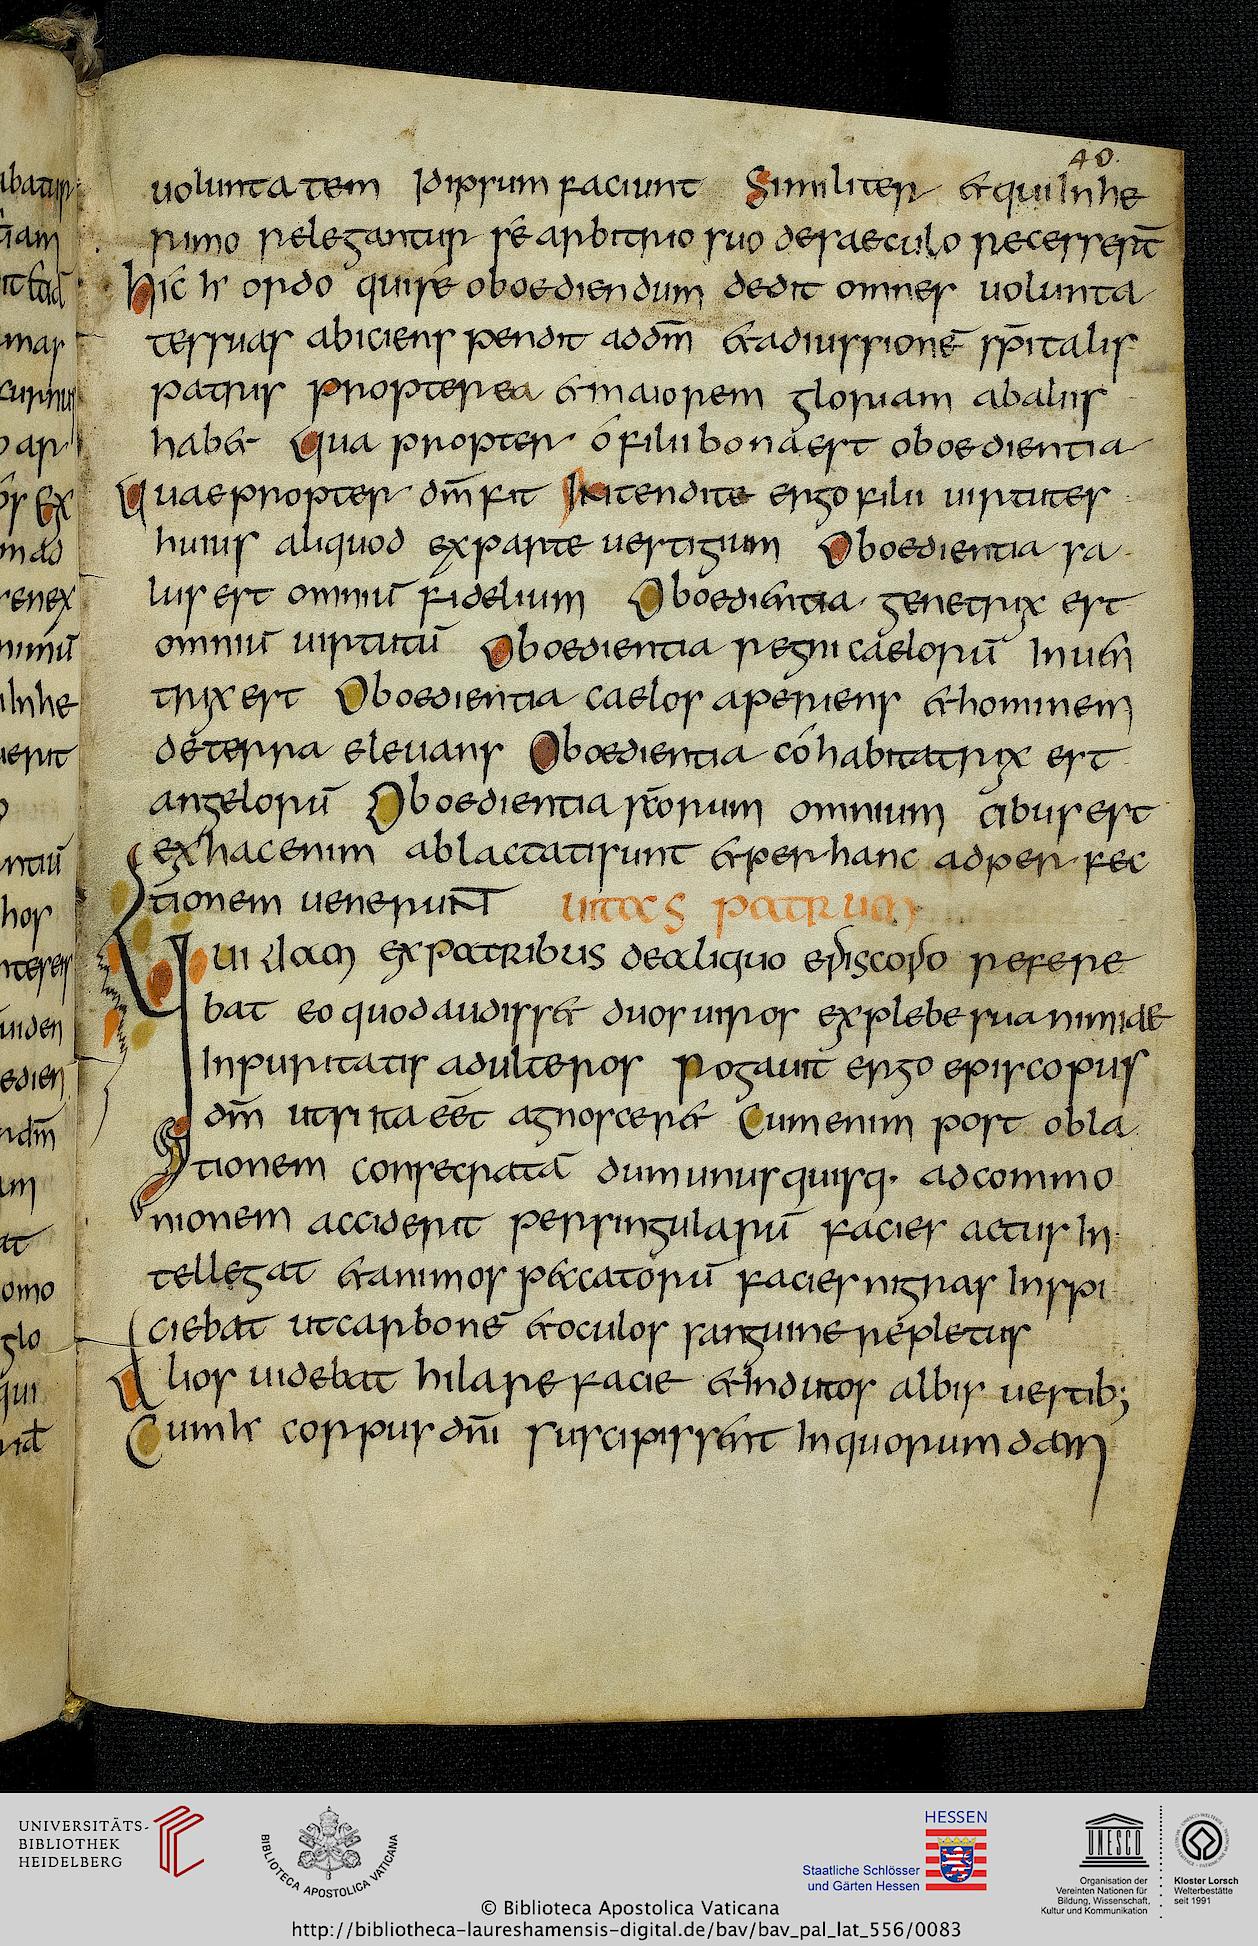 40.
uoluntatem Idipsum faciunt Similiter &qui Inhe
rimo relegantur se arbitrio suo desaeculo recesser̄t
hic h̄ ordo quise oboediendum dedit omnes uolunta
tessuas abiciens pendit addm̄ &adiussionē sp̄italis
patris propterea &maiorem gloriam abaliis
hab& Qua propter ó filii bona est oboedientia
Quae propter dm̄ fit Intendite ergo filii uirtutes
huius aliquod exparte uestigium Oboedientia sa
lus est omniū fidelium Oboedi&ntia genetrix est
omniū uirtutū Oboedientia regni caelorū Inuen
trix est Oboedientia caelos aperiens &hominem
de terra eleuans Oboedientia cohabitatrix est
angelorū Oboedientia sc̄orum omnium cibus est
ex hac enim ablactati sunt &per hanc ad per fec
tionem uenerunt uitas patrum
Quidam ex patribus de aliquo episcopo refere
bat eo quod audiss& duos uiros ex plebe sua nimiae
Inpuritatis adulteros Rogauit ergo episcopus
dm̄ utsi ita eēt agnoscer& Cum enim post obla
tionem consecratā dum unusquisq· ad commo
nionem acciderit per singularū facies actus In
tellegat &animos peccatorū facies nigras Inspi
ciebat ut carbonē &oculos sanguine repletus
Alios uidebat hilare facie &Indutos albis uestib;
Cum h̄ corpus dn̄i suscipiss&nt In quorumdam
abatur
mas
ap
ex
mad
renex
nimū
Inhe
uerit
ntiū
hos
ntereis
uiden
edien
dm̄
am
at
omo
glo
qui
UNIVERSITÄTS-
BIBLIOTHEK
HEIDELBERG
BIBLIOTECA APOSTOLICA VATICANA
HESSEN
Staatliche Schlösser
und Gärten Hessen
UNESCO
Organisation der
Vereinten Nationen für
Bildung, Wissenschaft,
Kultur und Kommunikation
Kloster Lorsch
Welterbestätte
seit 1991
© Biblioteca Apostolica Vaticana
http://bibliotheca-laureshamensis-digital.de/bav/bav_pal_lat_556/0083